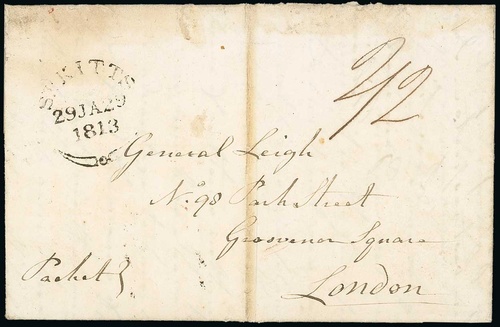 ST KITTS
29JA29
1813
2/2
General Leigh
No. 98 Park Street
Grosvenor Square
London
Packet